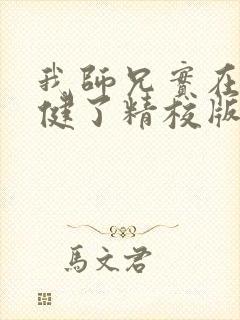 我師兄實在
健了精校版
馬文君